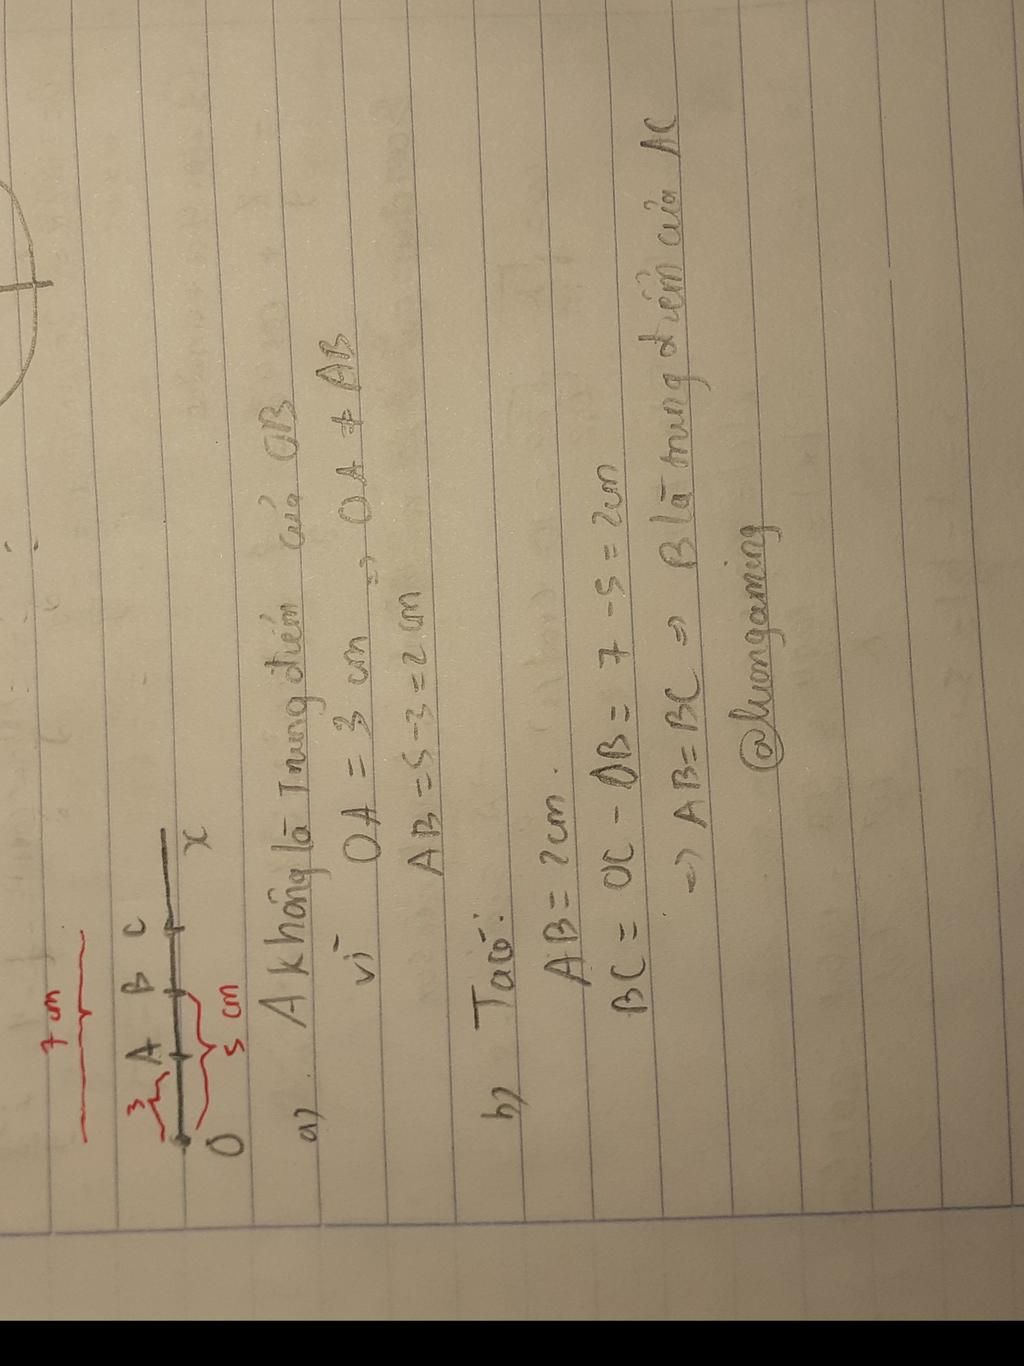 7 cm
3 A B C
O 5 cm x
a) . A không là Trung điểm của OB
vì OA = 3 cm => OA ≠ AB
AB = 5 - 3 = 2 cm
b) Ta có:
AB = 2cm.
BC = OC - OB = 7 - 5 = 2cm
=> AB = BC => B là trung điểm của AC
@luongaming